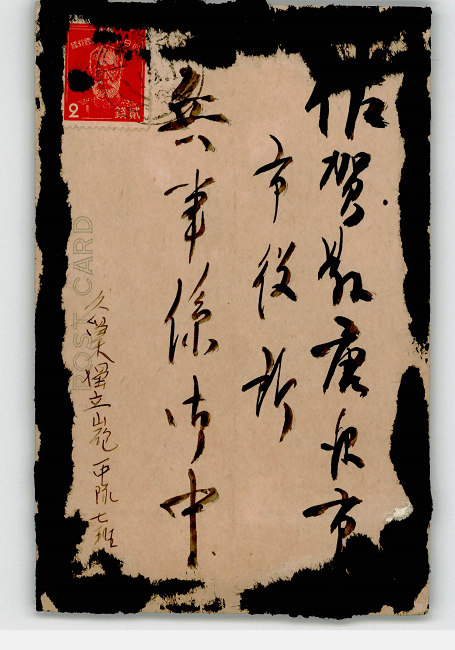 佐賀縣唐津市
市役所
兵事係御中
久留米獨立山砲一中隊七班
POST CARD
2
貳錢